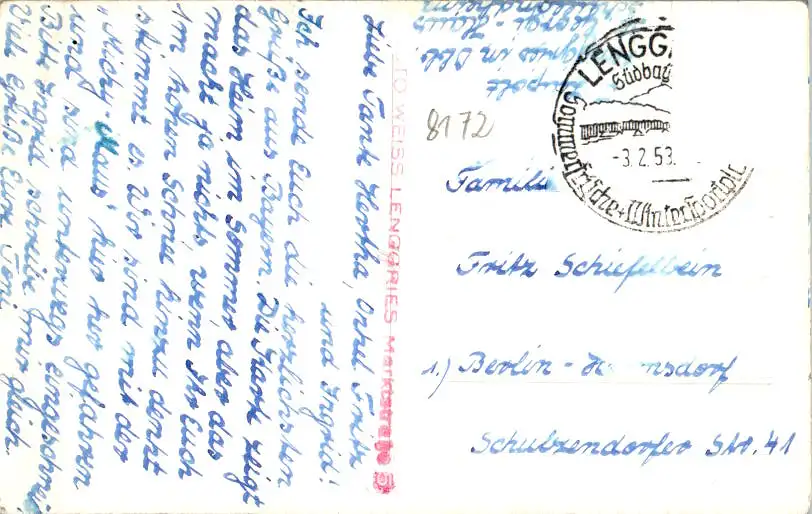 Liebe Tante Hertha, Onkel Fritz
und Ingrid!
Ich sende Euch die herzlichsten
Grüße aus Bayern. Die Karte zeigt
das Heim im Sommer, aber das
macht ja nichts, wenn Ihr Euch
1m hohen Schnee hinzu denkt
stimmt es. Wir sind mit der
"Micky-Maus" hier her gefahren
und sind unterwegs eingeschneit
Bitte Ingrid schreibe mir gleich
Viele Grüße Eure Toni
WEISS LENGGRIES Marktstraße
8172
LENGG
Südbay
Sommerfrische + Wintersportpl
-3.2.53.
Famili
Fritz Schiefelbein
1.) Berlin - nsdorf
Schulzendorfer Str. 41